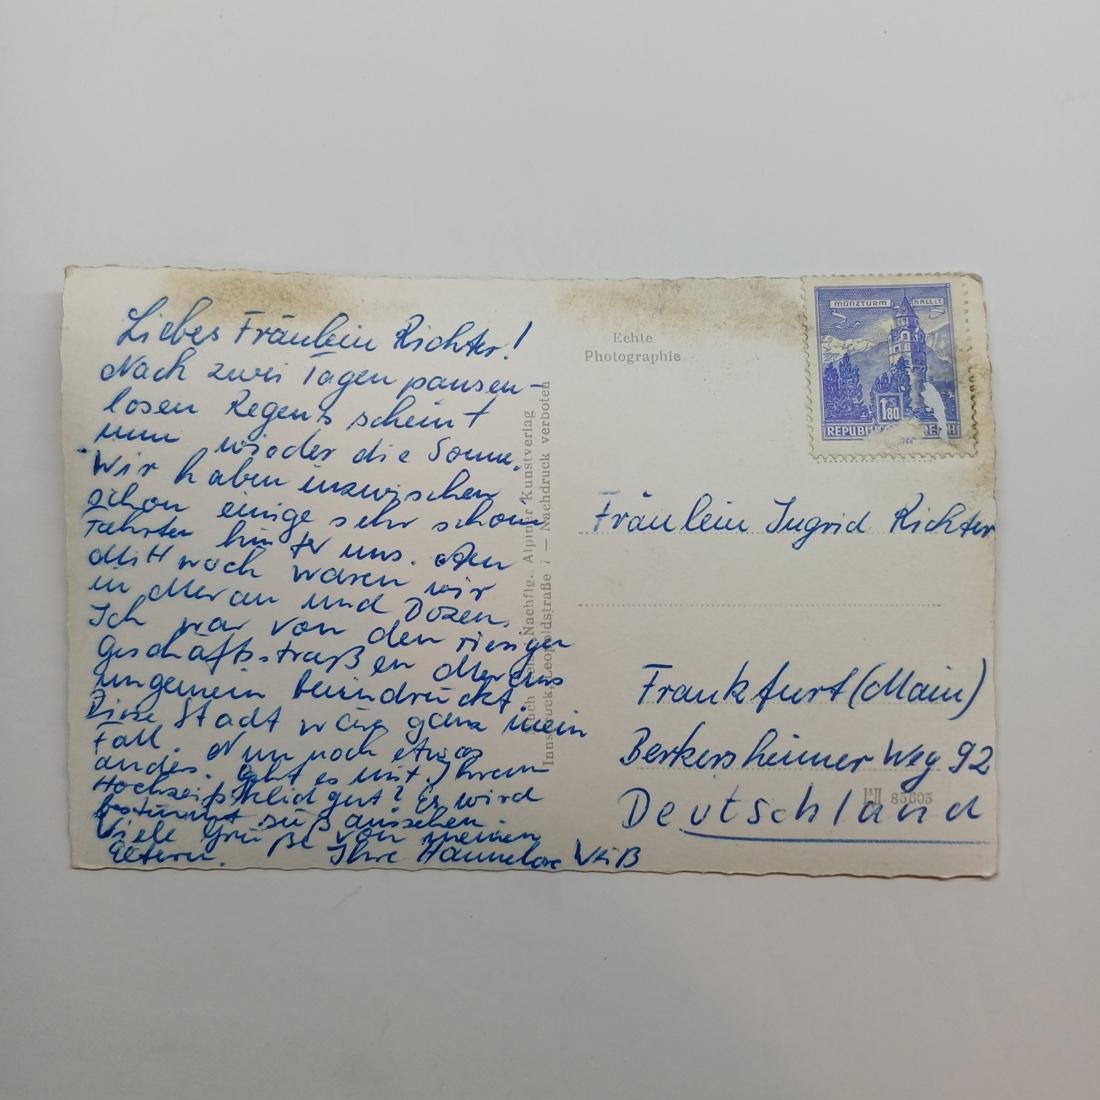 Liebes Fräulein Richter!
Nach zwei Tagen pausen-
losen Regens scheint
nun wieder die Sonne.
Wir haben inzwischen
schon einige sehr schöne
Fahrten hinter uns. Am
Mittwoch waren wir
in Meran und Bozen.
Ich war von den riesigen
Geschäftsstraßen Merans
ungemein beeindruckt.
Diese Stadt wäre ganz mein
Fall. Nun noch etwas
andes. Geht es mit Ihrem
Hochzeitskleid gut? Es wird
bestimmt süß aussehen.
Viele Grüße von meinen
Eltern. Ihre Hannelore Weiß
Nachflg., Alpiner Kunstverlag
Innsbruck, Leopoldstraße 7 — Nachdruck verboten
Echte
Photographie
MÜNZTURM HALL i.T.
1.80
REPUBLIK
Fräulein Ingrid Richter
Frankfurt (Main)
Berkersheimer Weg 92
Deutschland
85805